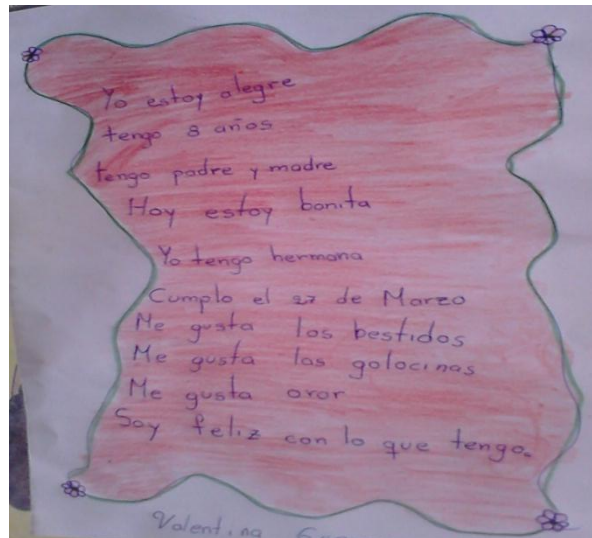 Yo estoy alegre
tengo 8 años
tengo padre y madre
Hoy estoy bonita
Yo tengo hermana
Cumplo el 27 de Marzo
Me gusta los bestidos
Me gusta las golocinas
Me gusta orar
Soy feliz con lo que tengo.
Valentina